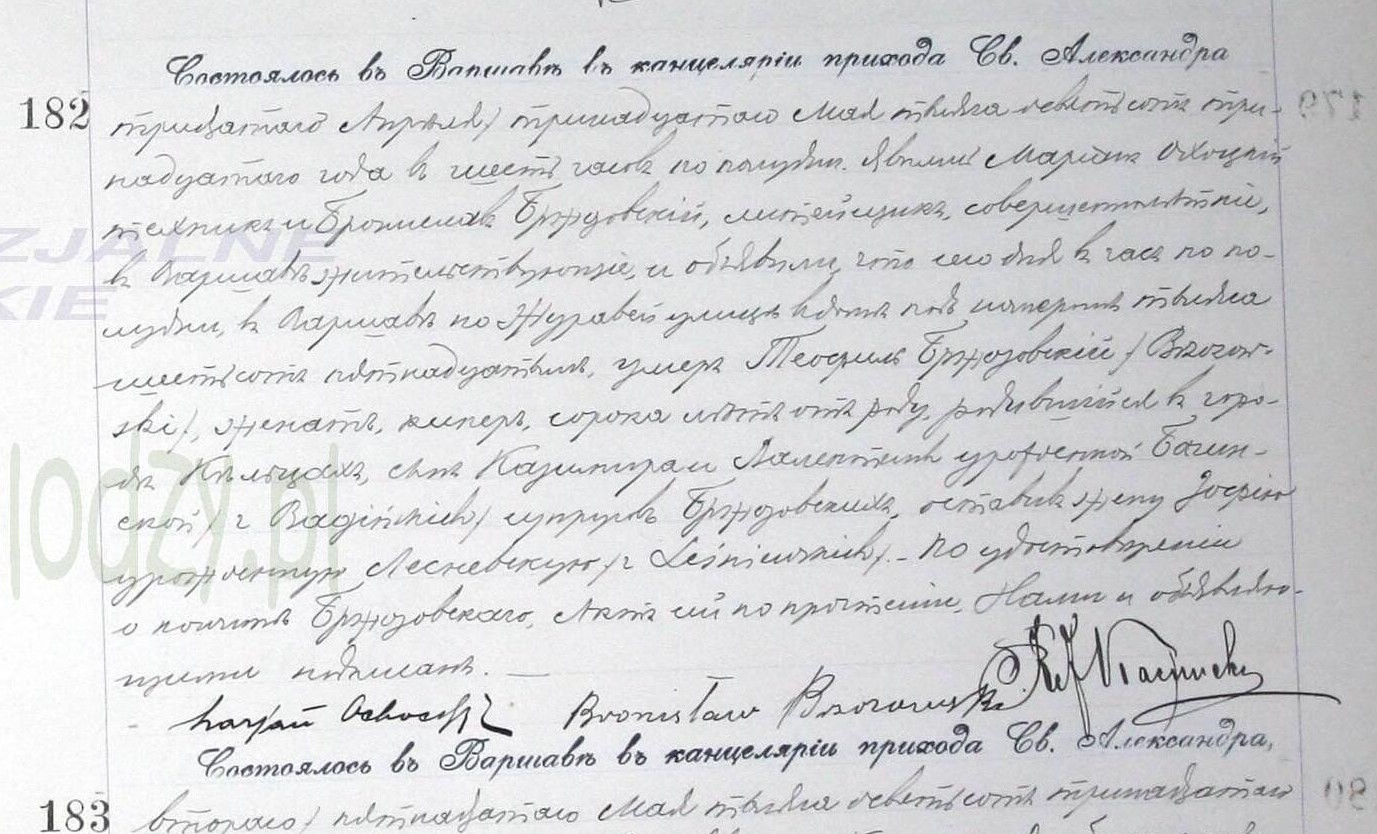 Состоялось въ Варшавѣ въ канцеляріи прихода Св. Александра
182 тридцатаго Апрѣля / тринадцатаго Мая тысяча девятьсотъ три-
надцатаго года въ шесть часовъ по полудни. Явились Маріанъ Охоцкій
техникъ и Брониславъ Бржозовскій, литейщикъ, совершеннолѣтніе,
въ Варшавѣ жительствующіе, и объявили, что сего дня въ часъ по по-
лудни, въ Варшавѣ по Журавей улицѣ въ домѣ подъ номеромъ тысяча
шестьсотъ пятнадцатымъ, умеръ Теофиль Бржозовскій / Brzozow-
ski /, женатъ, киперъ, сорока лѣтъ отъ роду, родившійся въ горо-
дѣ Кѣльцахъ, сынъ Казимира и Валентины урожденной Багин-
ской / z Bagińskich / супруговъ Бржозовскихъ, оставивъ жену Зофію
урожденную Лесневскую / z Leśniewskich /. - По удостовѣреніи
о кончинѣ Бржозовскаго, Актъ сей по прочтеніи, Нами и объявляю-
щими подписанъ. —
Maryan Ochocki Bronisław Brzozowski
Состоялось въ Варшавѣ въ канцеляріи прихода Св. Александра,
183 втораго / пятнадцатаго Мая тысяча девятьсотъ тринадцатаго
ZJALNE
KIE
lodzy.pl